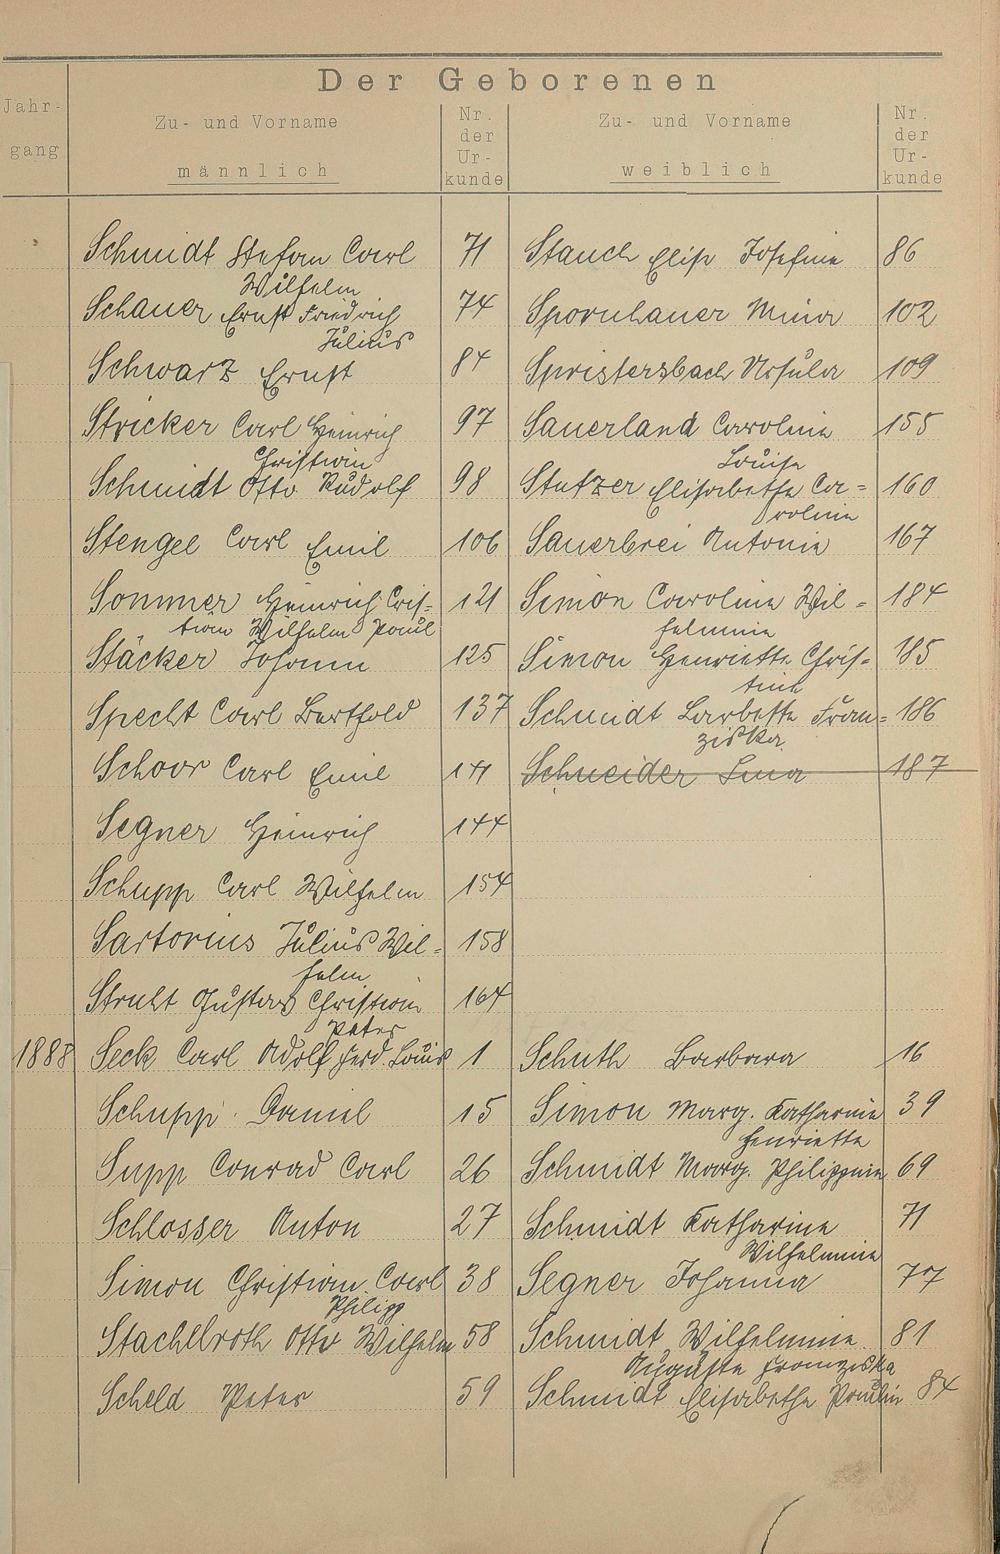 Der Geborenen
Jahr-
gang
Zu- und Vorname
männlich
Nr.
der
Ur-
kunde
Zu- und Vorname
weiblich
Nr.
der
Ur-
kunde
Schmidt Stefan Carl 71 Stauch Elise Josefine 86
Wilhelm
Schauer Ernst Friedrich 74 Spornhauer Mina 102
Julius
Schwarz Ernst 84 Spristersbach Ursula 109
Stricker Carl Heinrich 97 Sauerland Caroline 155
Christian Louise
Schmidt Otto Rudolf 98 Stutzer Elisabethe Ca= 160
roline
Stengel Carl Emil 106 Sauerbrei Antonie 167
Sommer Heinrich Cris= 121 Simon Caroline Wil= 184
tian Wilhelm Paul helmine
Stäcker Johann 125 Simon Henriette Chris= 185
tine
Specht Carl Berthold 137 Schmidt Barbette Fran= 186
ziska
Schoor Carl Emil 141 Schneider Lina 187
Segner Heinrich 144
Schupp Carl Wilhelm 154
Sartorius Julius Wil= 158
helm
Struht Gustav Christian 164
Peter
1888 Seck Carl Adolf Ferd. Louis 1 Schuth Barbara 16
Schupp Daniel 15 Simon Marg. Katharine 39
Henriette
Supp Conrad Carl 26 Schmidt Marg. Philippine 69
Schlosser Anton 27 Schmidt Katharine 71
Wilhelmine
Simon Christian Carl 38 Segner Johanna 77
Philipp
Stachlbroth Otto Wilhelm 58 Schmidt Wilhelmine 81
Auguste Franziska
Scheld Peter 59 Schmidt Elisabethe Paulin 84